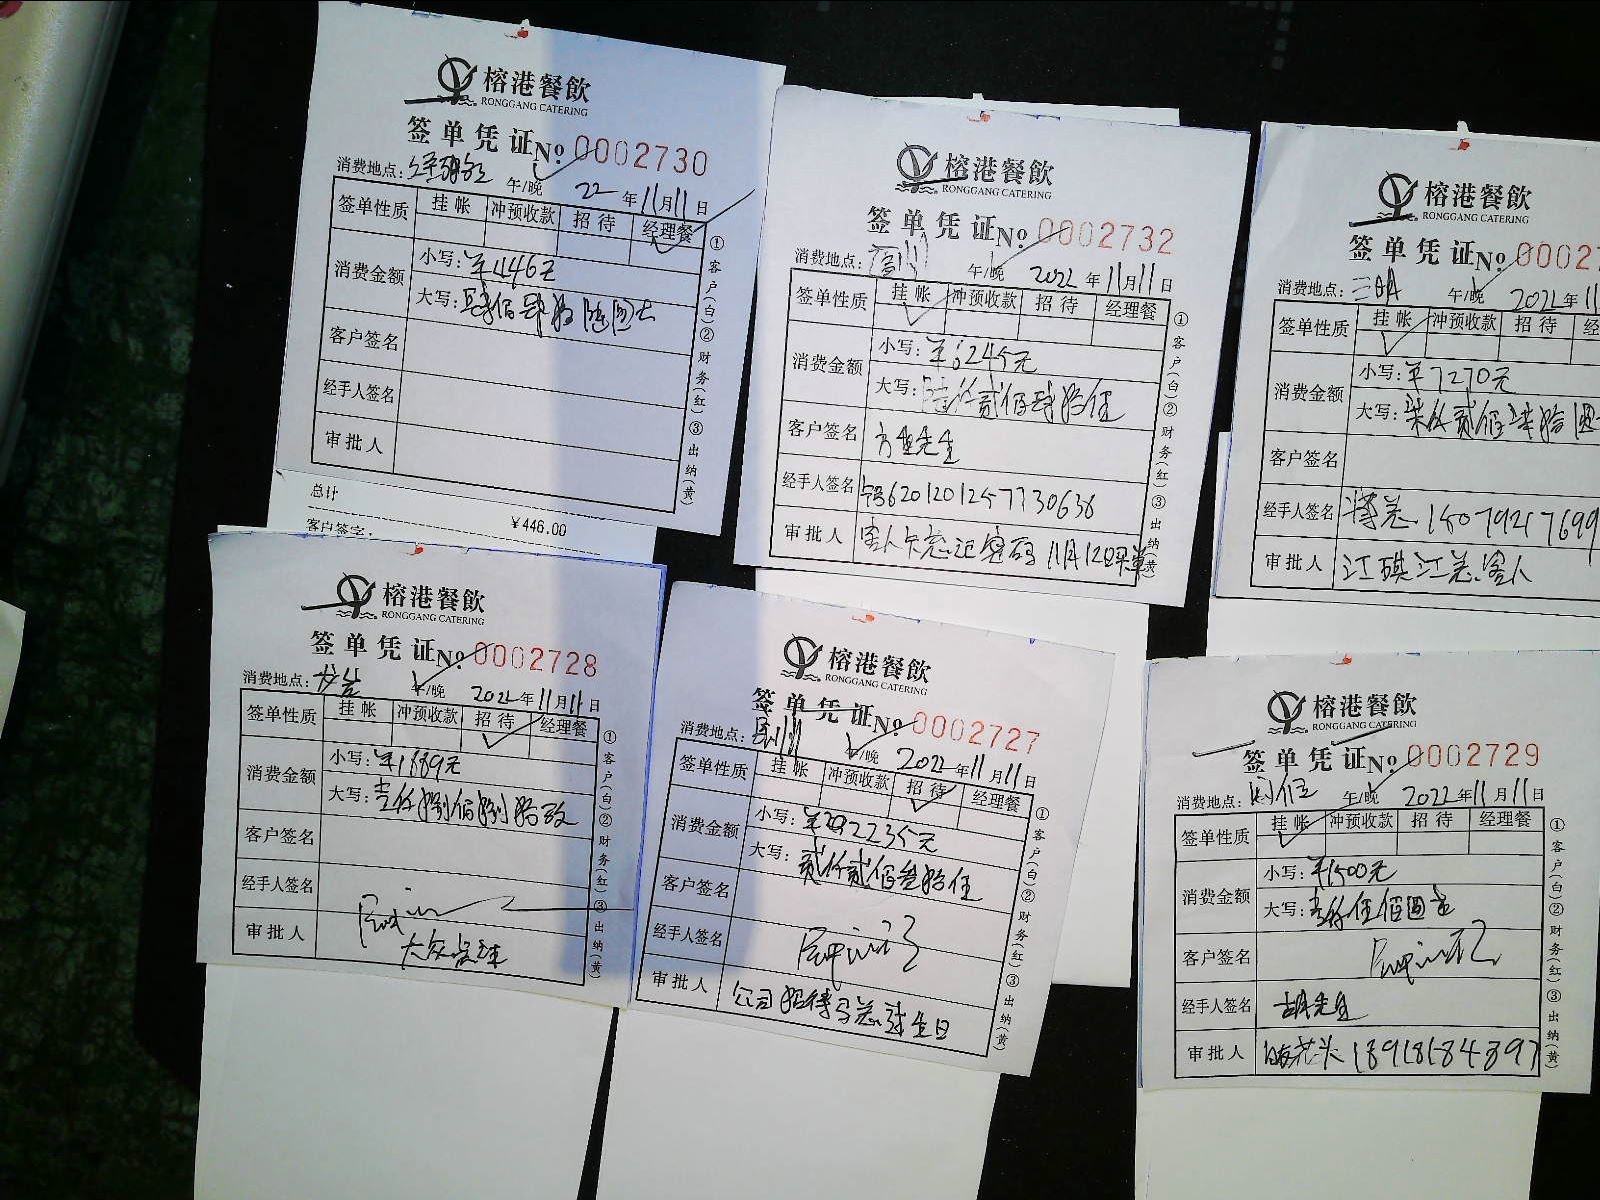 榕港餐飲
RONGGANG CATERING
签单凭证 No 0002730
消费地点: 午/晚 22年11月11日
签单性质 挂帐 冲预收款 招待 经理餐
消费金额 小写:¥446元
大写:肆佰肆拾陆圆
客户签名
经手人签名
审批人
①客户(白)②财务(红)③出纳(黄)
总计
¥446.00
客户签字:
榕港餐飲
RONGGANG CATERING
签单凭证 No 0002732
消费地点: 午/晚 2022年11月11日
签单性质 挂帐 冲预收款 招待 经理餐
消费金额 小写:¥6245元
大写:陆仟贰佰肆拾伍
客户签名 先生
经手人签名
审批人 客人卡忘记密码 11月12日买单
①客户(白)②财务(红)③出纳(黄)
榕港餐飲
RONGGANG CATERING
签单凭证 No 00027
消费地点:三明 午/晚 2022年11
签单性质 挂帐 冲预收款 招待 经
消费金额 小写:¥7270元
大写:柒仟贰佰柒拾圆
客户签名
经手人签名 15079217699
审批人 江琪江总客人
榕港餐飲
RONGGANG CATERING
签单凭证 No 0002728
消费地点:龙岩 午/晚 2022年11月11日
签单性质 挂帐 冲预收款 招待 经理餐
消费金额 小写:¥1889元
大写:壹仟捌佰捌拾玖
客户签名
经手人签名
审批人 大众点评
①客户(白)②财务(红)③出纳(黄)
榕港餐飲
RONGGANG CATERING
签单凭证 No 0002727
消费地点: 午/晚 2022年11月11日
签单性质 挂帐 冲预收款 招待 经理餐
消费金额 小写:¥2235元
大写:贰仟贰佰叁拾伍
客户签名
经手人签名
审批人 公司招待马总 生日
①客户(白)②财务(红)③出纳(黄)
榕港餐飲
RONGGANG CATERING
签单凭证 No 0002729
消费地点: 午/晚 2022年11月11日
签单性质 挂帐 冲预收款 招待 经理餐
消费金额 小写:¥1500元
大写:壹仟伍佰圆
客户签名
经手人签名 胡先生
审批人 18918184397
①客户(白)②财务(红)③出纳(黄)